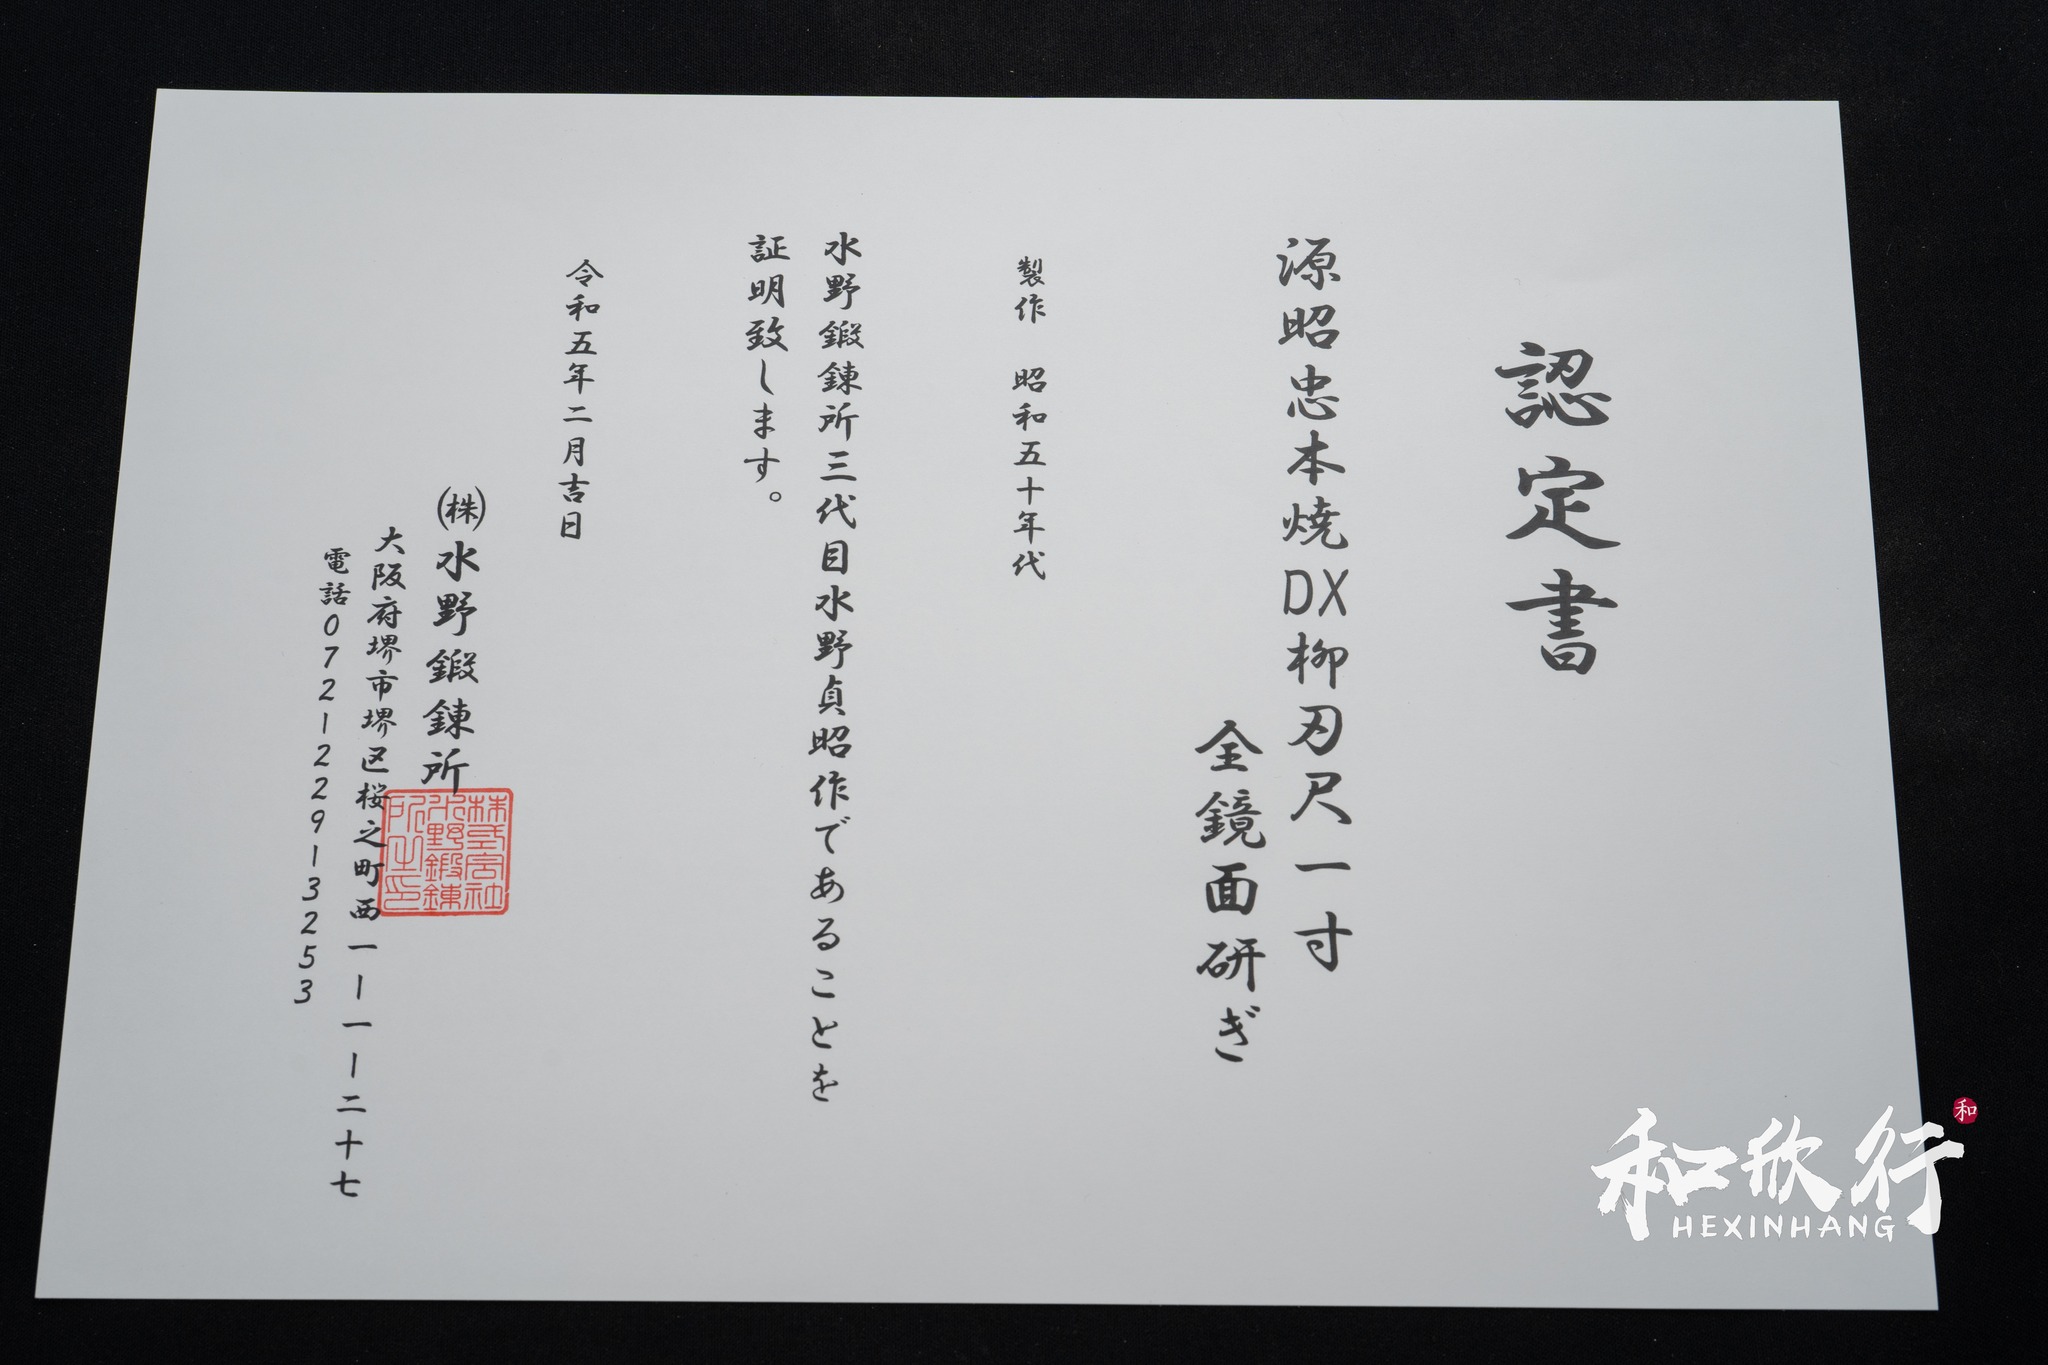 認定書
源昭忠本焼DX柳刃尺一寸
全鏡面研ぎ
製作 昭和五十年代
水野鍛錬所三代目水野貞昭作であることを
証明致します。
令和五年二月吉日
㈱水野鍛錬所
大阪府堺市堺区桜之町西一ー一ー二十七
電話072-229-3253
株式会社
水野鍛錬
所之印
和欣行
和
HEXINHANG